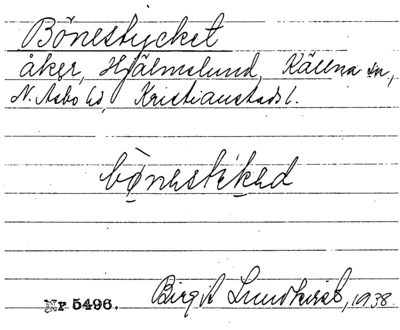 Bönestycket
åker, Hjälmslund, Källna sn,
N. Åsbo hd, Kristianstads l.
bònestìkəd
Nr 5496. Birgit Lundkvist, 1938.